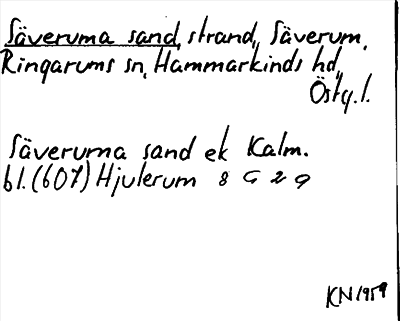 Säveruma sand, strand, Säverum,
Ringarums sn, Hammarkinds hd,
Östg.l.
Säveruma sand ek Kalm.
bl. (607) Hjulerum 8 G 2 g
KN 1959